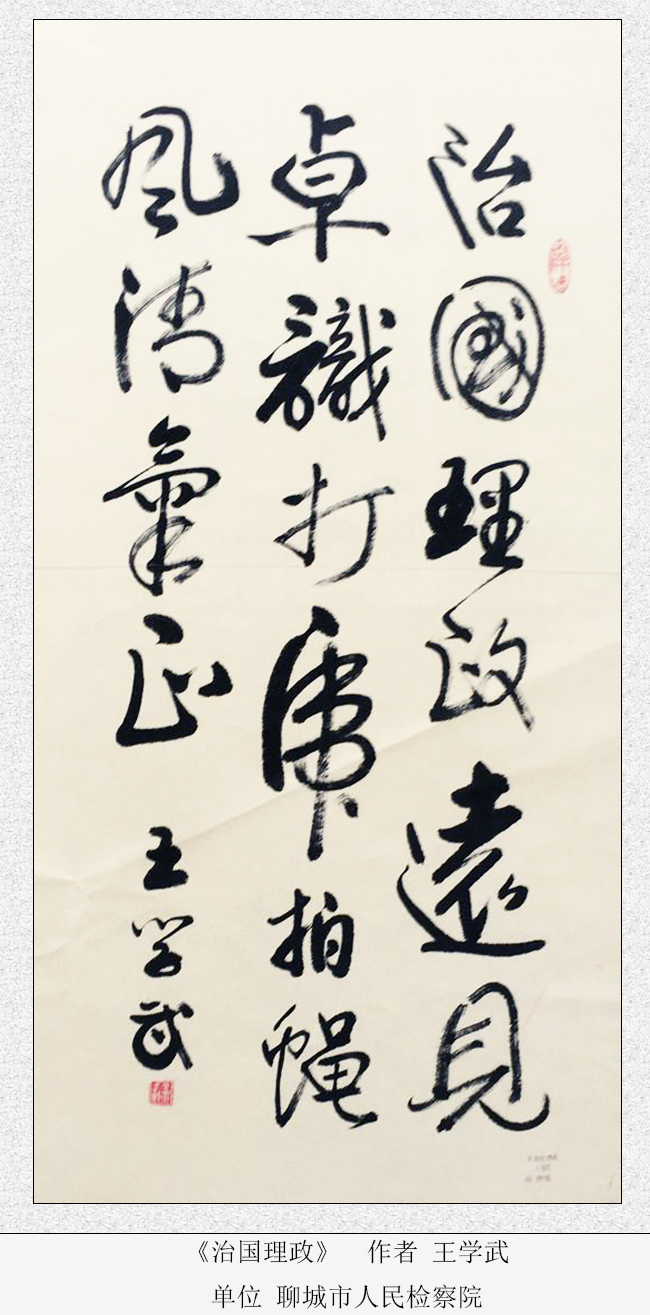 治國理政遠見
卓識打虎拍蝇
風清氣正 王学武
《治国理政》 作者 王学武
单位 聊城市人民检察院